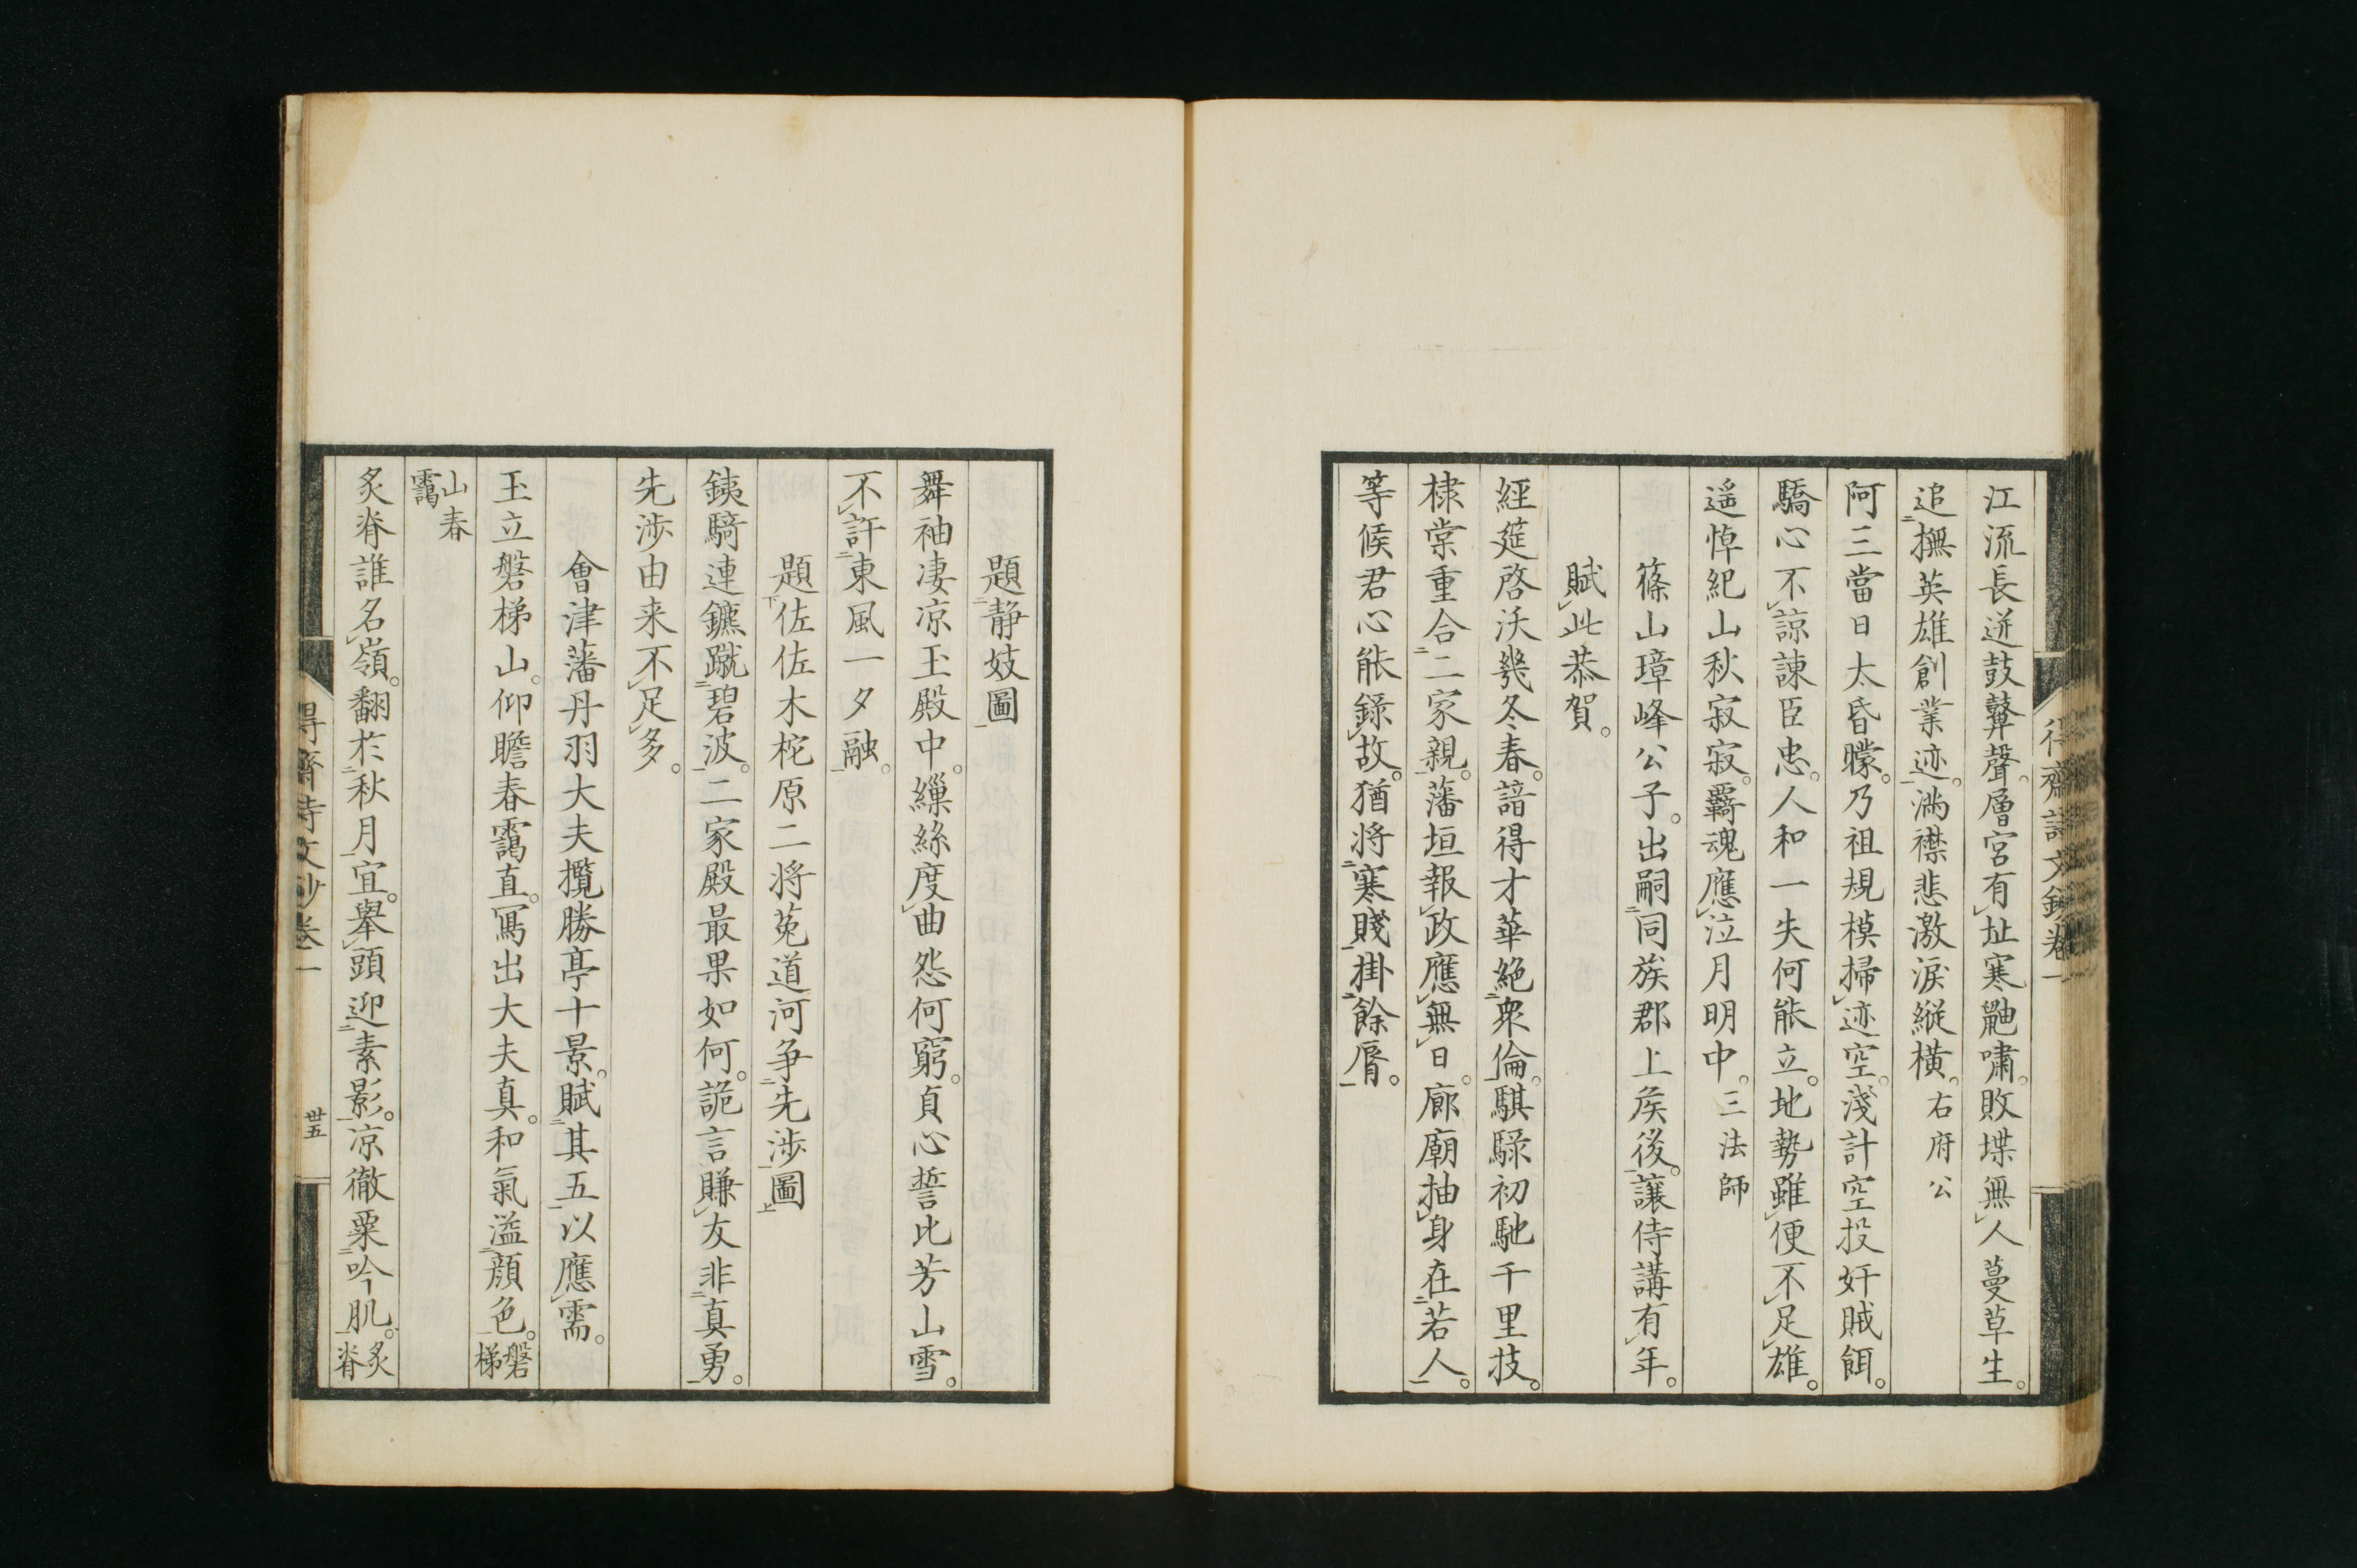 江流長迸鼓鼙聲。層宮有址寒鼬嘯。敗堞無人蔓草生。
追撫英雄創業迹。滿襟悲激淚縱橫。右府公
阿三當日太昏矇。乃祖規模掃迹空。淺計空投奸賊餌。
驕心不諒諫臣忠。人和一失何能立。地勢雖便不足雄。
遥悼紀山秋寂寂。覇魂應泣月明中。三法師
篠山璋峰公子。出嗣同族郡上侯後。讓侍講有年。
賦此恭賀。
經筵啓沃幾冬春。諳得才華絶衆倫。騏騄初馳千里技。
棣棠重合二家親。藩垣報政應無日。廊廟抽身在若人。
等候君心能錄故。猶將寒賤掛餘脣。
得齋詩文鈔卷一
題静妓圖
舞袖凄凉玉殿中。繅絲度曲怨何窮。貞心誓比芳山雪。
不許東風一夕融。
題佐佐木柁原二将菟道河争先渉圖
銕騎連鑣蹴碧波。二家殿最果如何。詭言賺友非真勇。
先渉由来不足多。
會津藩丹羽大夫攬勝亭十景。賦其五以應需。
玉立磐梯山。仰瞻春靄直。寫出大夫真。和氣溢顔色。磐梯
山春靄
炙脊誰名嶺。翻於秋月宜。舉頭迎素影。凉徹粟吟肌。炙脊
得齋詩文鈔卷一
卅五